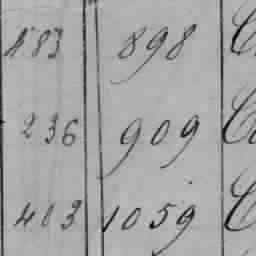 883 898 C
236 909 C
403 1059 C